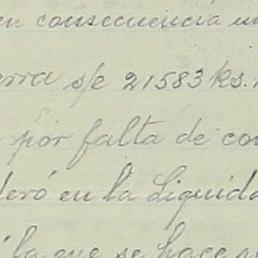 en consecuencia un
erra s/e 21583 ks.
por falta de con
deró en la Liquida
la que se hace